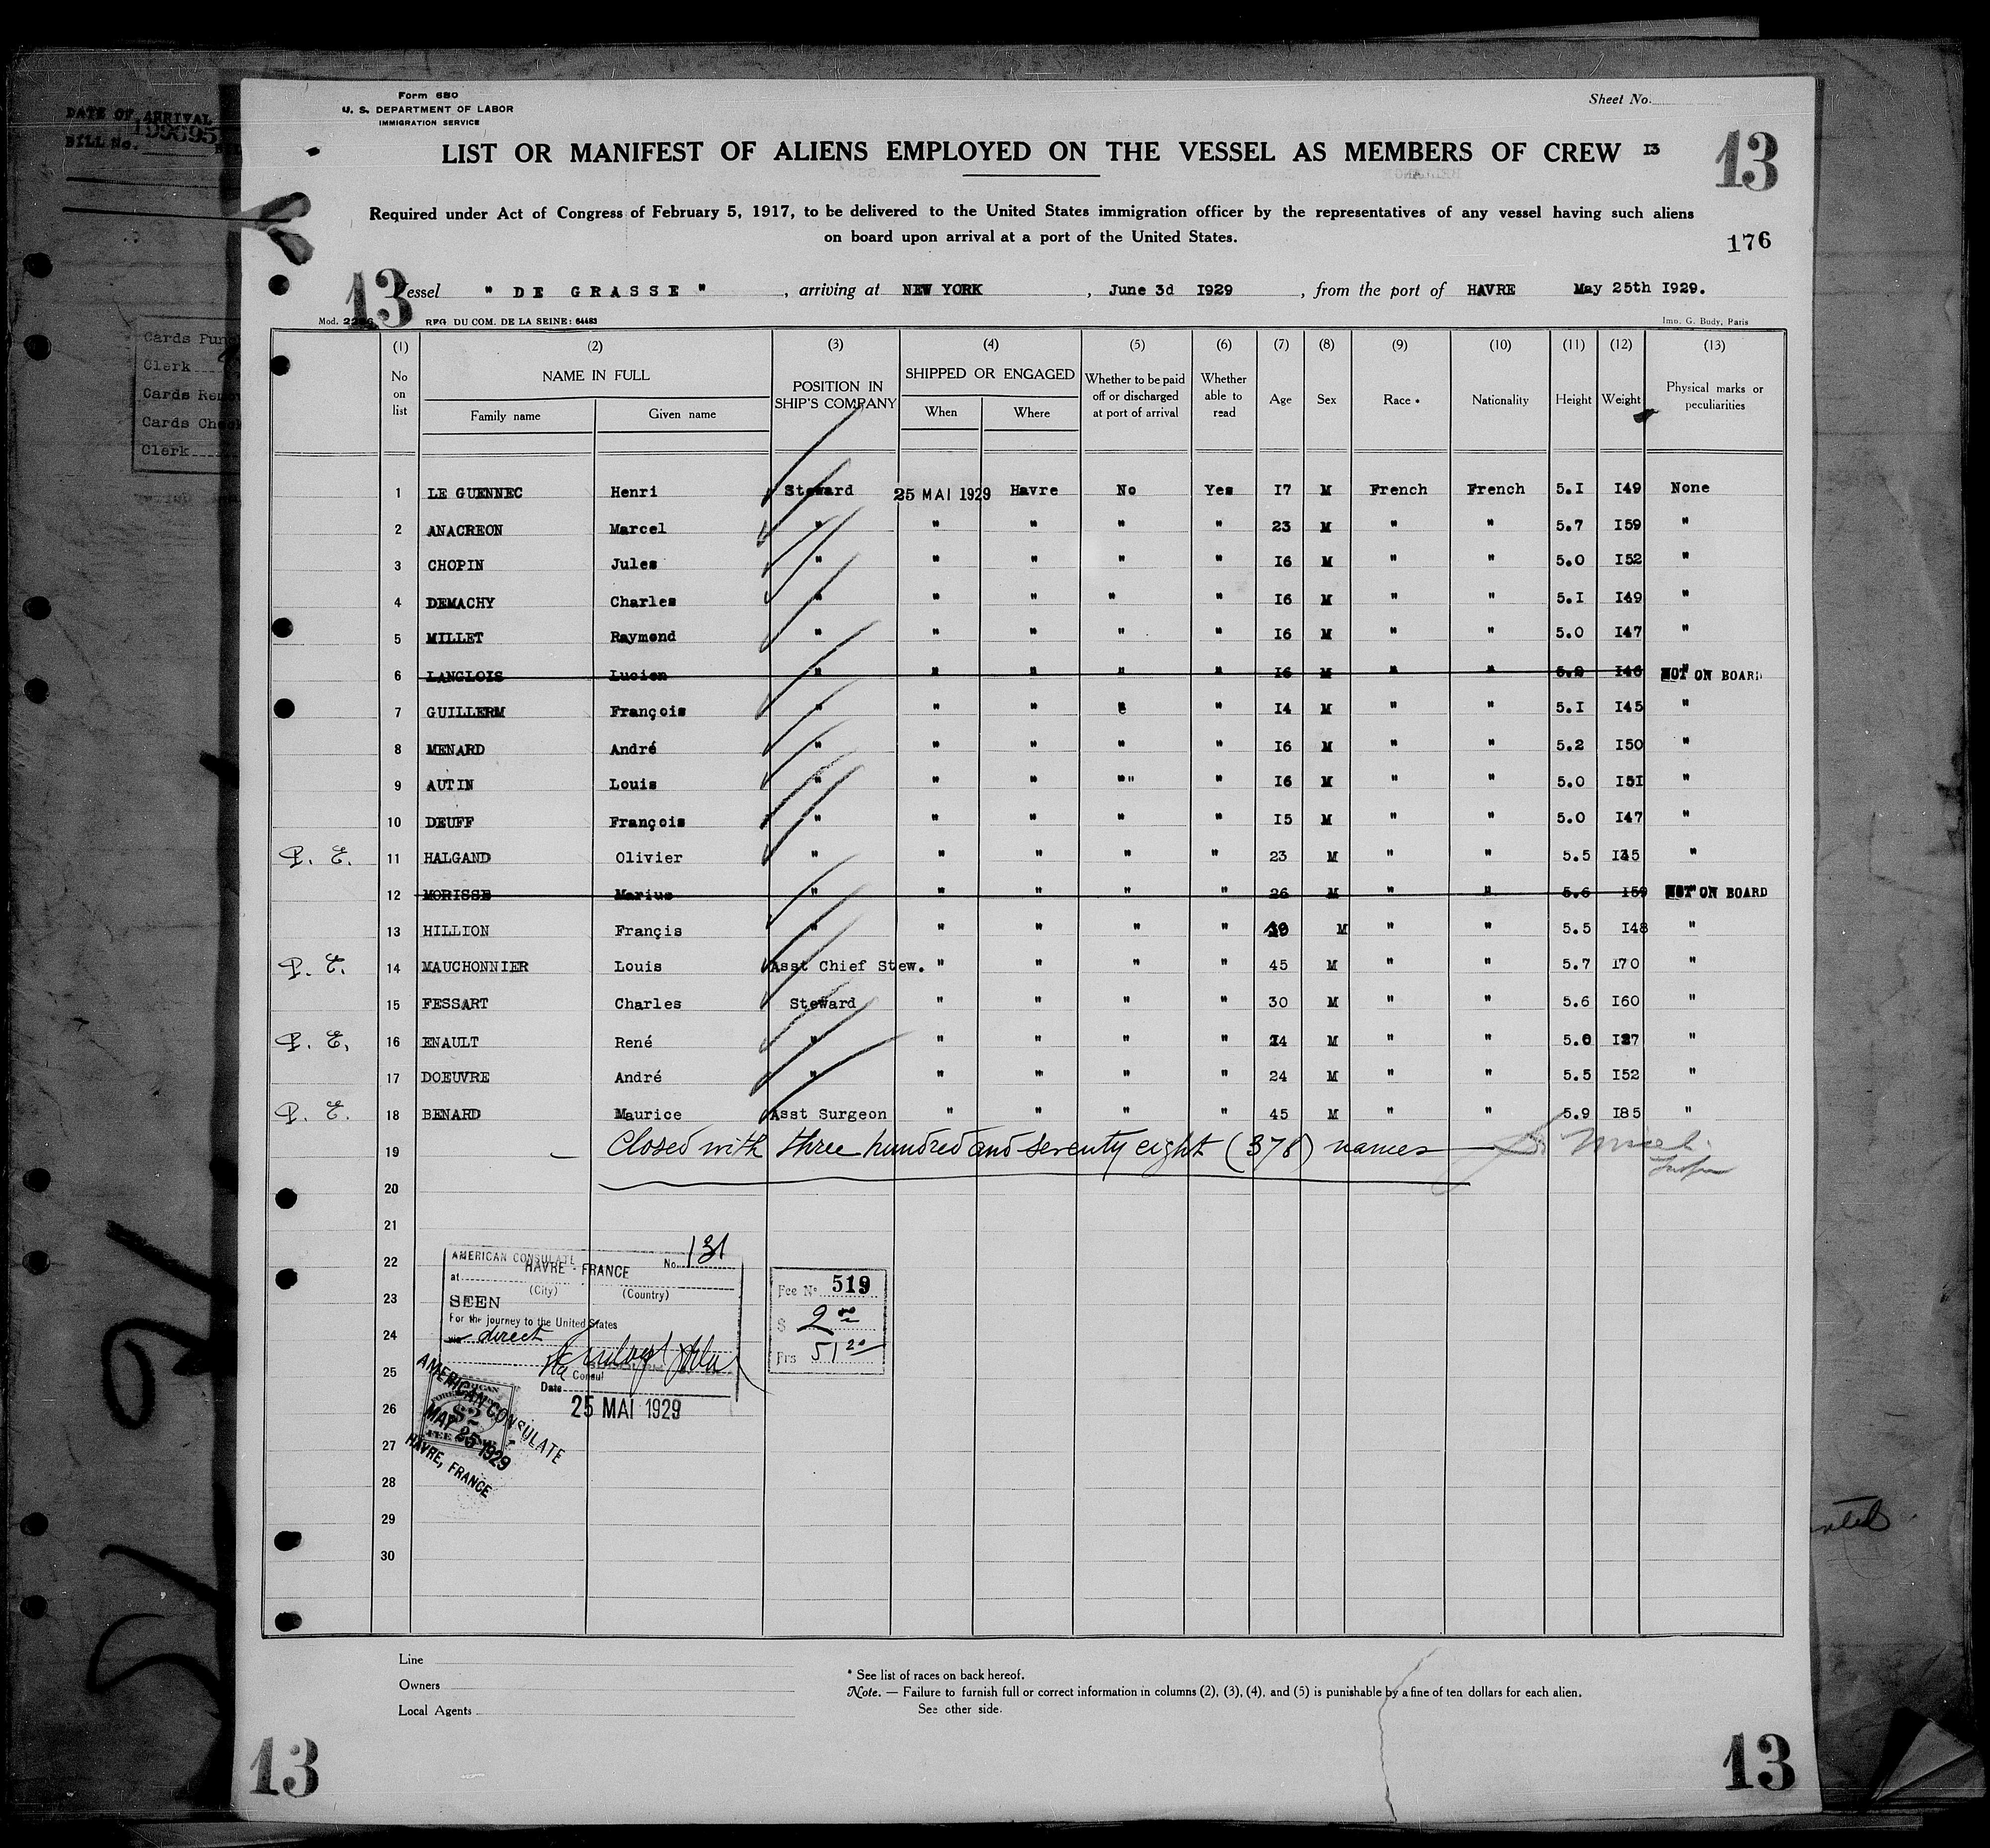 DATE OF ARRIVAL
BILL No. 199695
Cards Pun
Clerk
Cards Remov
Cards Check
Clerk
Form 680
U. S. DEPARTMENT OF LABOR
IMMIGRATION SERVICE
Sheet No.
LIST OR MANIFEST OF ALIENS EMPLOYED ON THE VESSEL AS MEMBERS OF CREW 13
13
Required under Act of Congress of February 5, 1917, to be delivered to the United States immigration officer by the representatives of any vessel having such aliens
on board upon arrival at a port of the United States.
176
13
Vessel " DE GRASSE " , arriving at NEW YORK , June 3d 1929 , from the port of HAVRE May 25th 1929.
Mod. 2286 REG. DU COM. DE LA SEINE: 64483 Imp. G. Budy, Paris
(1) (2) (3) (4) (5) (6) (7) (8) (9) (10) (11) (12) (13)
No on list NAME IN FULL Family name Given name POSITION IN SHIP'S COMPANY SHIPPED OR ENGAGED When Where Whether to be paid off or discharged at port of arrival Whether able to read Age Sex Race * Nationality Height Weight Physical marks or peculiarities
1 LE GUENNEC Henri Steward 25 MAI 1929 Havre No Yes 17 M French French 5.1 149 None
2 ANACREON Marcel " " " " " 23 M " " 5.7 159 "
3 CHOPIN Jules " " " " " 16 M " " 5.0 152 "
4 DEMACHY Charles " " " " " 16 M " " 5.1 149 "
5 MILLET Raymond " " " " " 16 M " " 5.0 147 "
6 LANGLOIS Lucien " " " " " 16 M " " 5.2 146 " NOT ON BOARD
7 GUILLERM François " " " " " 14 M " " 5.1 145 "
8 MENARD André " " " " " 16 M " " 5.2 150 "
9 AUTIN Louis " " " "" " 16 M " " 5.0 151 "
10 DEUFF François " " " " " 15 M " " 5.0 147 "
P. E. 11 HALGAND Olivier " " " " " 23 M " " 5.5 135 "
12 MORISSE Marius " " " " " 26 M " " 5.6 159 " NOT ON BOARD
13 HILLION Françis " " " " " M " " 5.5 148 "
P. E. 14 MAUCHONNIER Louis Asst Chief Stew. " " " " 45 M " " 5.7 170 "
15 FESSART Charles Steward " " " " 30 M " " 5.6 160 "
P. E. 16 ENAULT René " " " " " 24 M " " 5.0 "
17 DOEUVRE André " " " " " 24 M " " 5.5 152 "
P. E. 18 BENARD Maurice Asst Surgeon " " " " 45 M " " 5.9 185 "
19 Closed with three hundred and seventy eight (378) names
20
21
22
23
24
25
26
27
28
29
30
AMERICAN CONSULATE No. 131
at HAVRE - FRANCE
(City) (Country)
SEEN
For the journey to the United States
via direct
Consul
Date
25 MAI 1929
Fee No. 519
$ 2 00
Frs 51 20
AMERICAN CONSULATE
MAY 25 1929
HAVRE, FRANCE
$2
Line
Owners
Local Agents
* See list of races on back hereof.
Note. — Failure to furnish full or correct information in columns (2), (3), (4), and (5) is punishable by a fine of ten dollars for each alien.
See other side.
13
13